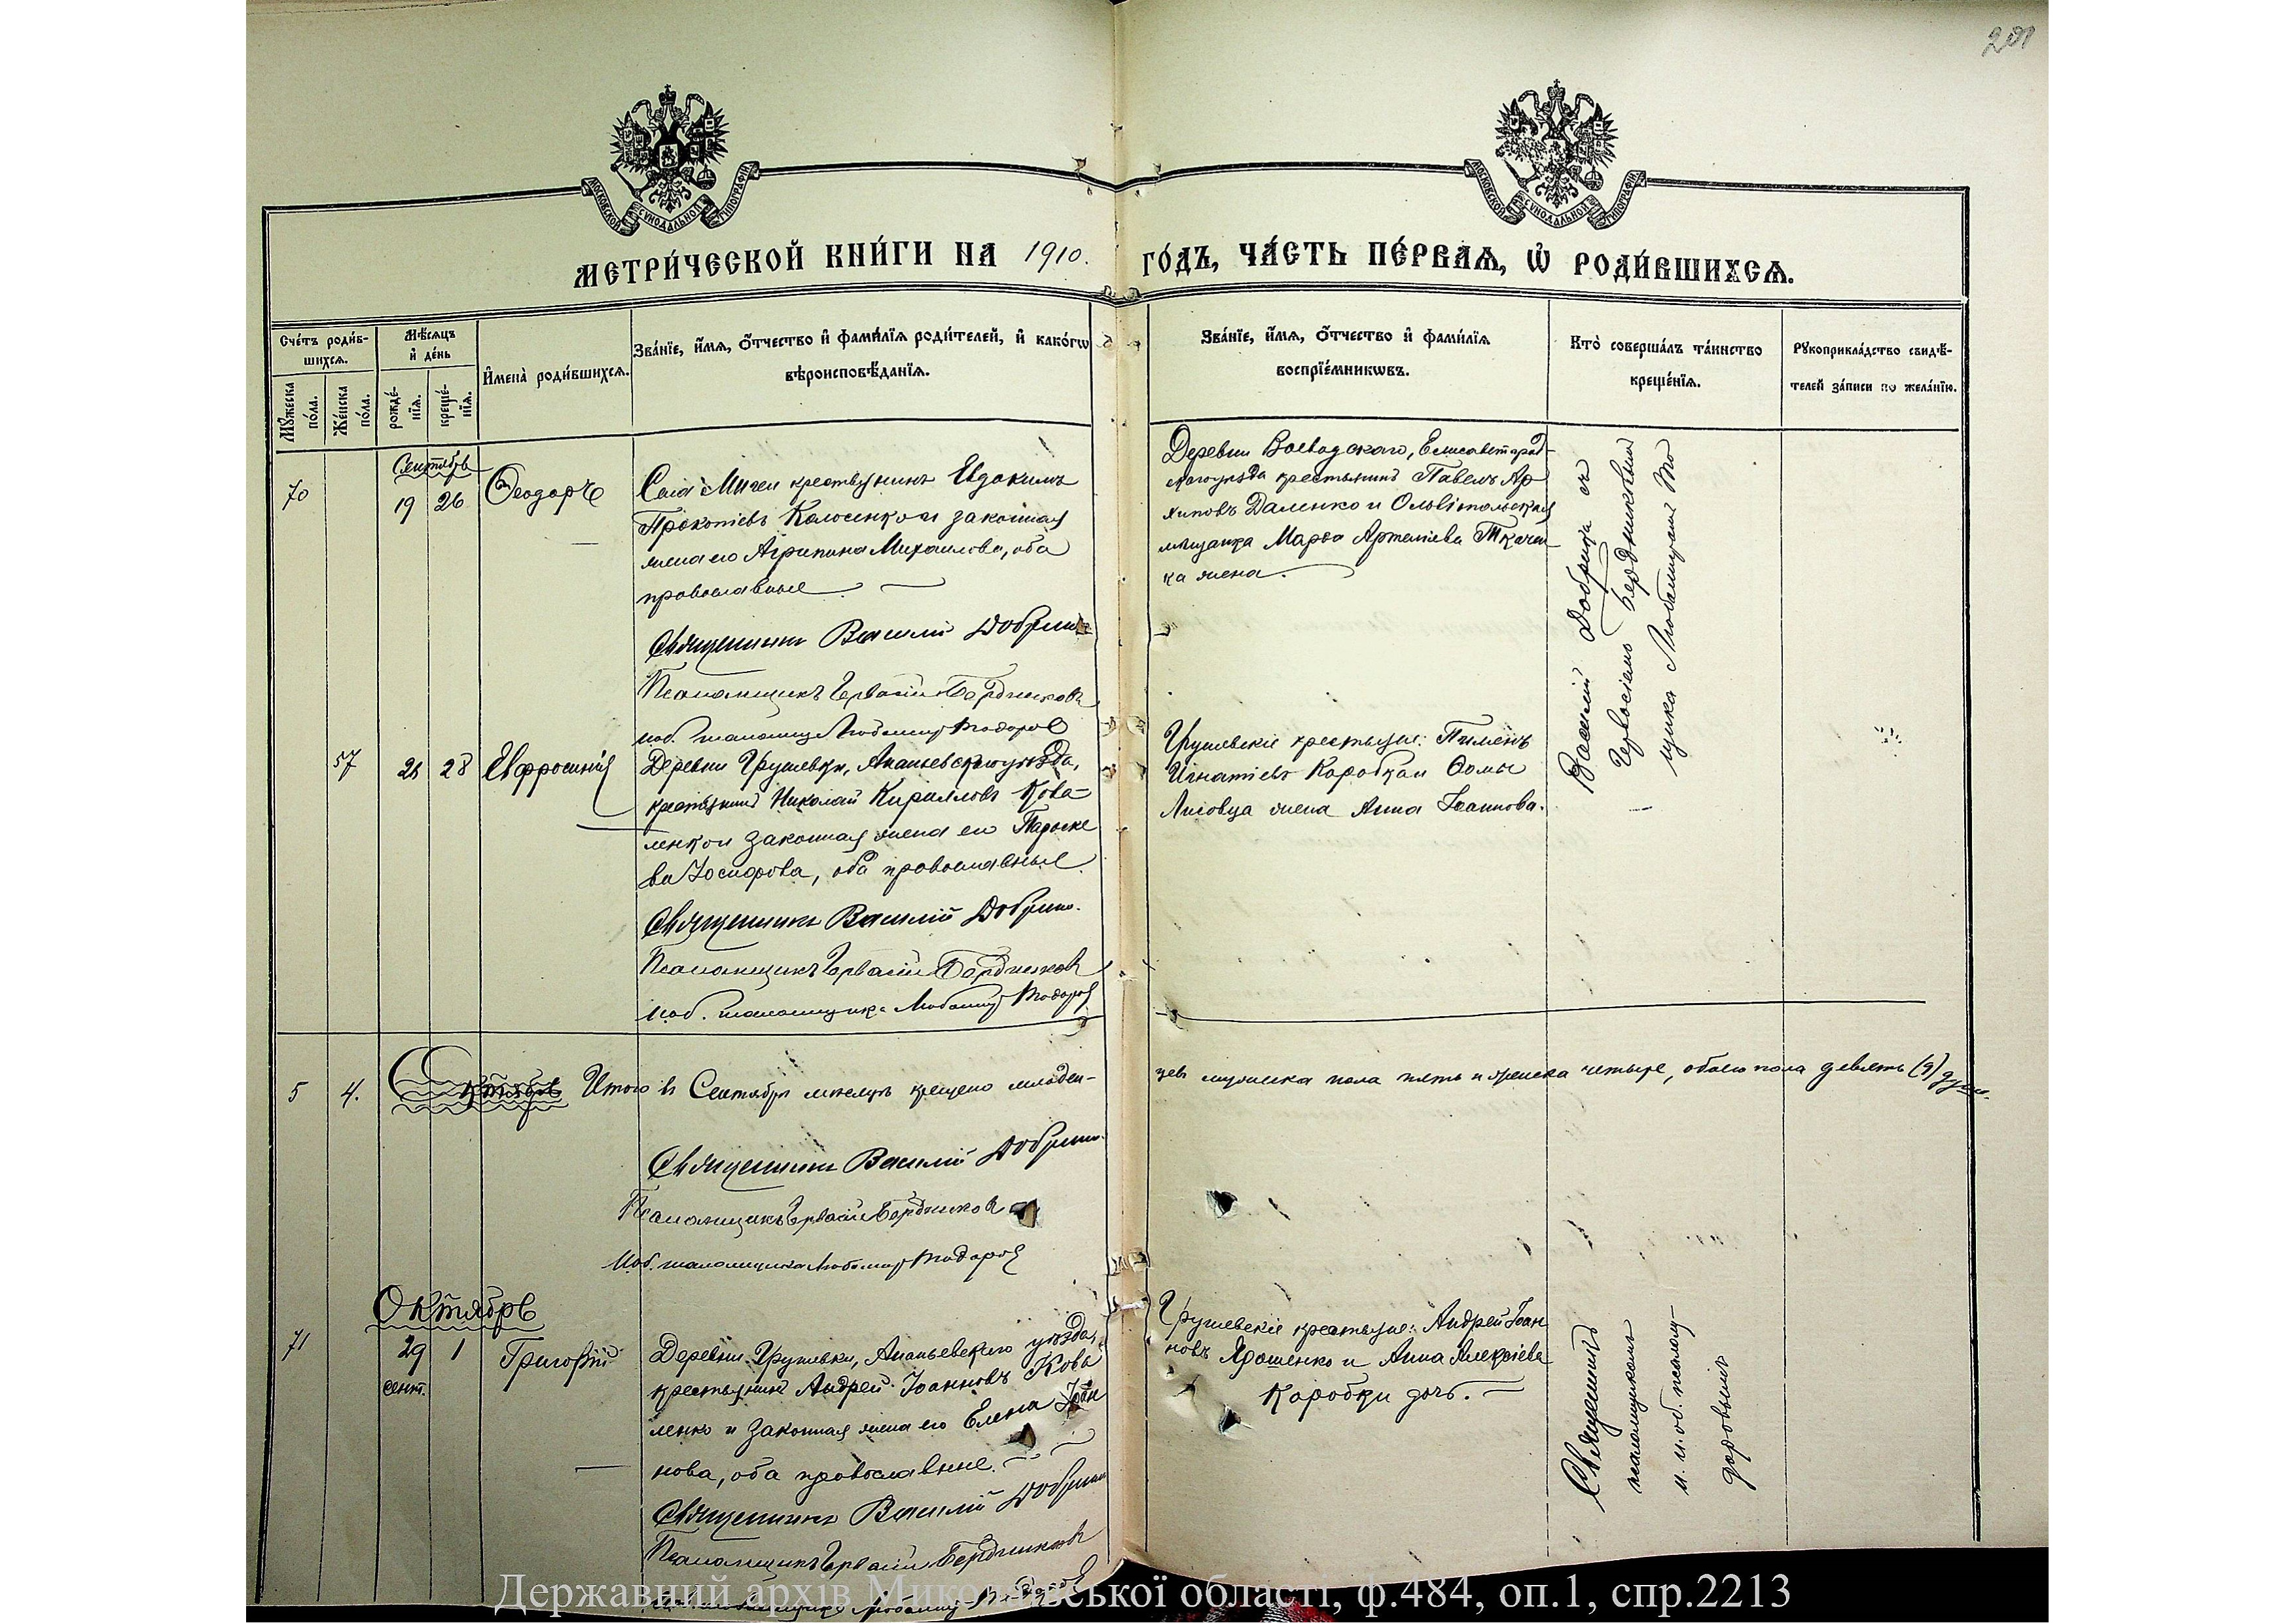 201
МОСКОВСКОЙ СѴНОДАЛЬНОЙ ТИПОГРАФІИ
МОСКОВСКОЙ СѴНОДАЛЬНОЙ ТИПОГРАФІИ
МЕТРИ́ЧЕСКОЙ КНИ́ГИ НА 1910. ГО́ДЪ, ЧА́СТЬ ПЕ́РВАѦ, Ѡ҆ РОДИ́ВШИХСѦ.
Сче́тъ роди́в-
шихсѧ.
Мѣ́сѧцъ
и҆ де́нь
Мꙋ́жеска
по́ла.
Же́нска
по́ла.
рожде́-
нїѧ.
креще́-
нїѧ.
И҆мена̀ роди́вшихсѧ.
Зва́нїе, и҆́мѧ, ѻ҆́тчество и҆ фами́лїѧ роди́телей, и҆ како́гѡ
вѣроисповѣ́данїѧ.
Зва́нїе, и҆́мѧ, ѻ҆́тчество и҆ фами́лїѧ
воспрїе́мникѡвъ.
Кто̀ соверша́лъ та́инство
креще́нїѧ.
Рꙋкоприкла́дство свидѣ́-
телей за́писи по жела́нїю.
Сентябрь
70 19 26 Ѳеодоръ
Села Мигеи крестьянинъ Евдокимъ
Прокопіевъ Колосенко и законная
жена его Агрипина Михаилова, оба
православные.
Священникъ Василій Добрин
Псаломщикъ Гервасій Бердниковъ
и.об. псаломщ. Любомиръ Тодоровъ
Деревни Воеводской, Елисаветград-
скаго уѣзда крестьянинъ Павелъ Ар
хиповъ Даленко и Ольвіопольская
мѣщанка Марѳа Артеміева Ткачен-
ка жена.
57 21 28 Евфросинія
Деревни Грушевки, Ананьевскаго уѣзда,
крестьянинъ Николай Кирилловъ Кова-
ленко и законная жена его Параске
ва Іосифова, оба православные.
Священникъ Василій Добрин.
Псаломщикъ Гервасій Бердниковъ
и.об. псаломщика Любомиръ Тодоровъ
Грушевскіе крестьяне: Пименъ
Игнатіевъ Коробка и Ѳомы
Лисовца жена Анна Іоаннова.
Василій
Гервасіемъ Бердниковымъ
щика Любомиромъ То
5 4. Октябрь Итого въ Сентябрѣ мѣсяцѣ крещено младен-
цевъ мужеска пола пять и женска четыре, обоего пола девять (9) душъ.
Священникъ Василій Добрин
Псаломщикъ Гервасій Бердниковъ
И.об. псаломщика Любомиръ Тодоровъ
Октябрь
71 29 1 Григорій
сент.
Деревни Грушевки, Ананьевскаго уѣзда,
крестьянинъ Андрей Іоанновъ Кова
ленко и законная жена его Елена Іоан
нова, оба православные.
Священникъ Василій Добрин
Псаломщикъ Гервасій Бердниковъ
Грушевскіе крестьяне: Андрей Іоан
новъ Ярошенко и Анна Алексіева
Коробки дочь.
Священникъ
псаломщикомъ
и и.об. псалом-
доровымъ
Державний архів Миколаївської області, ф.484, оп.1, спр.2213